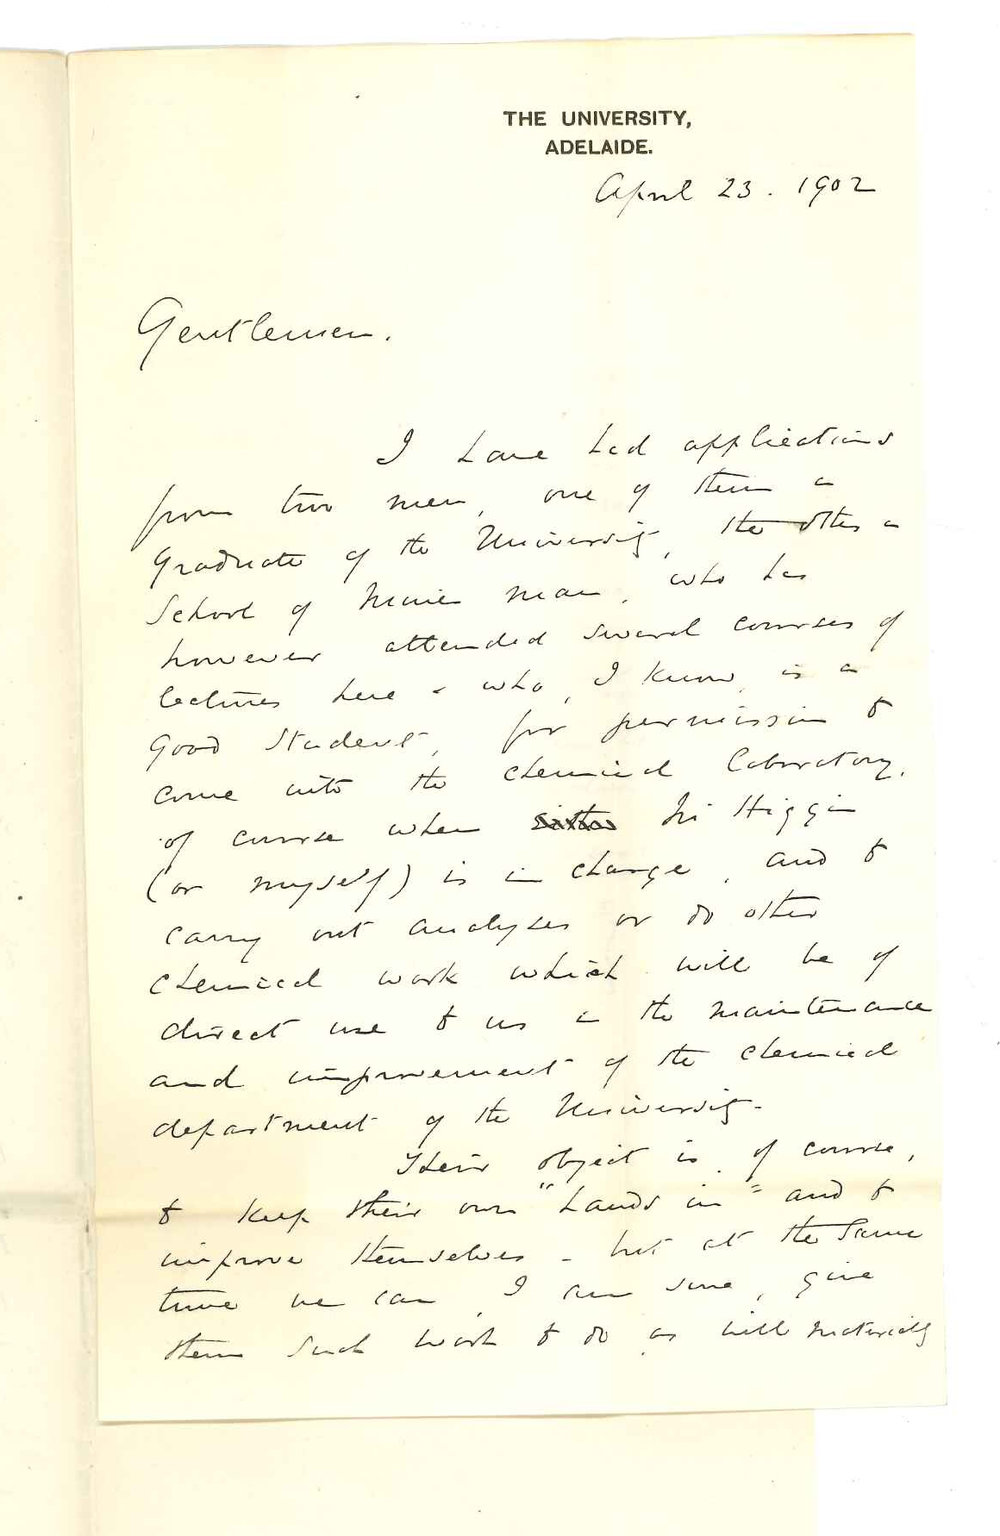 THE UNIVERSITY,
ADELAIDE.
April 23. 1902
Gentlemen.
I have had applications
from two men, one of them a
graduate of the University, the other a
School of Mines man, who has
however attended several courses of
lectures here & who, I know, is a
good student, for permission to
come into the chemical laboratory,
of course when Mr Higgin
(or myself) is in charge, and to
carry out analyses or do other
chemical work which will be of
direct use to us in the maintenance
and improvement of the chemical
department of the University.
Their object is, of course,
to keep their own "hands in" and to
improve themselves - but at the same
time we can, I am sure, give
them such work to do as will materially